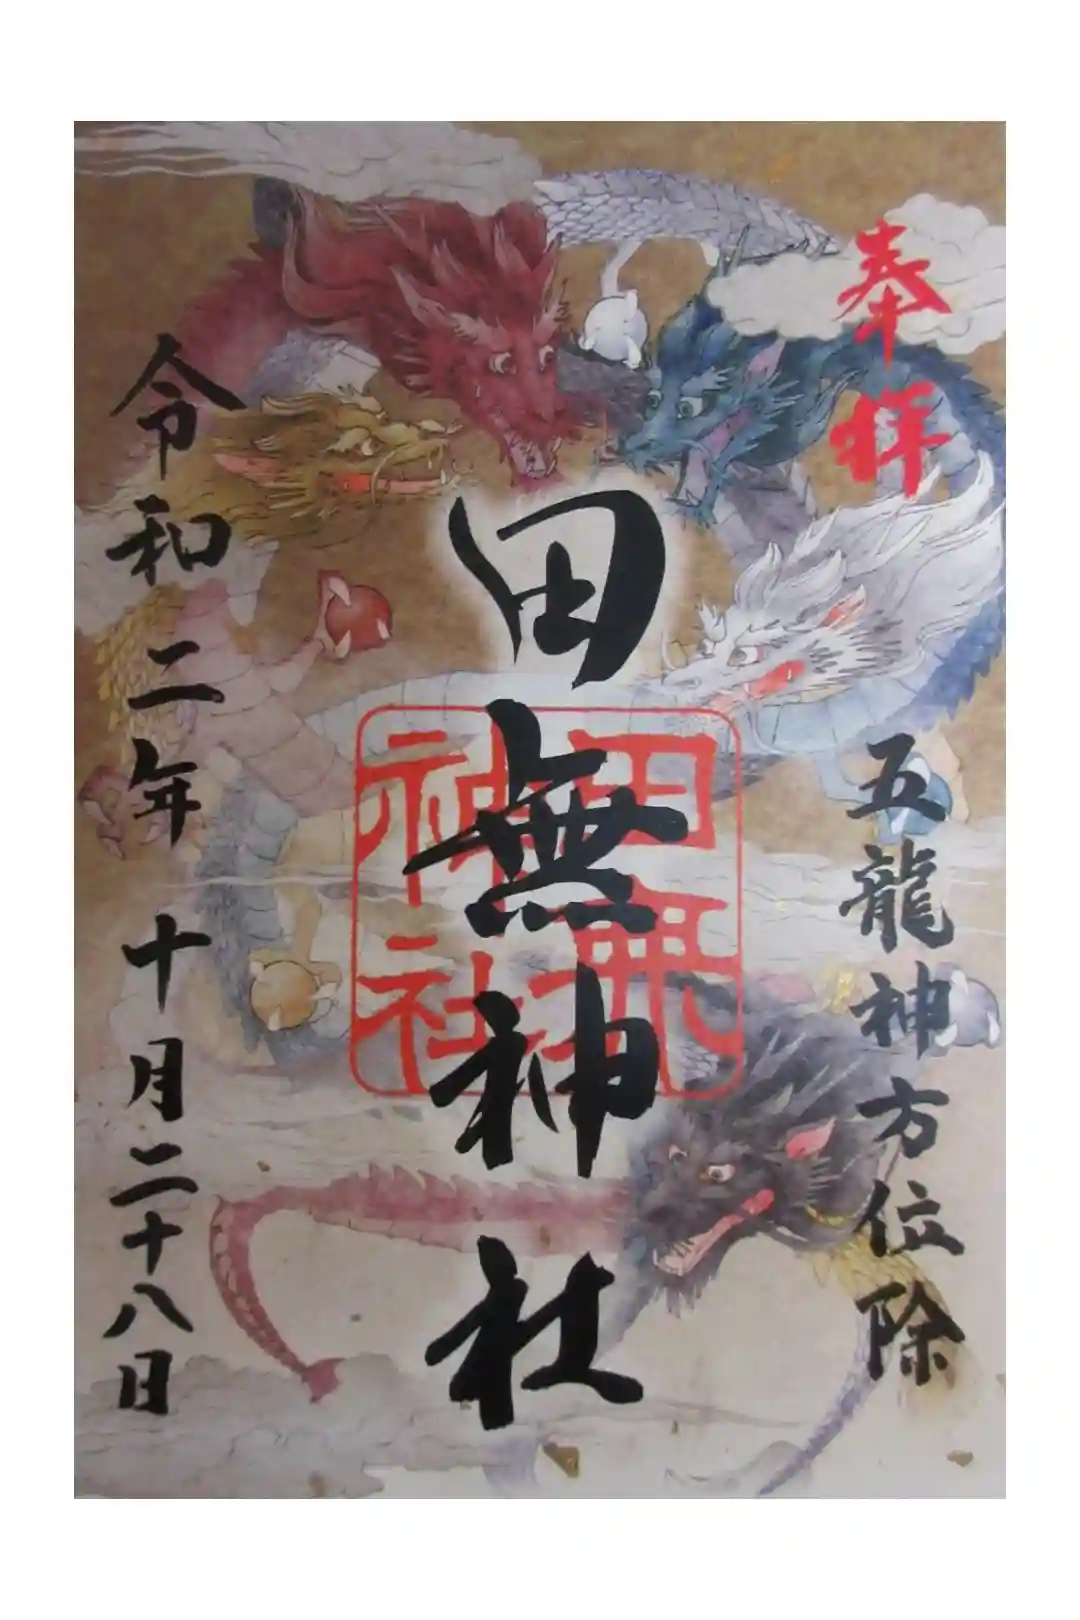 奉拝
五龍神方位除
田無神社
田無神社
令和二年十月二十八日